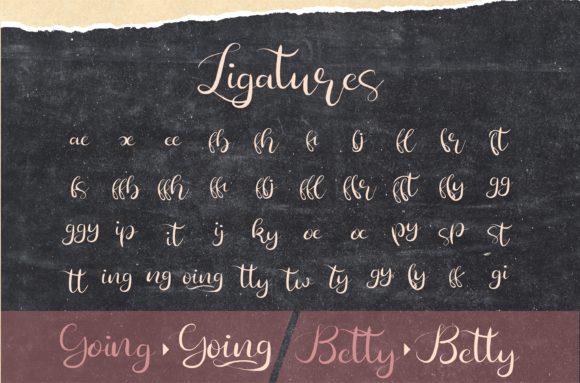 Ligatures
ae æ fb fh fi fj fl fr ft
fs ffb ffh ffi ffj ffl ffr fft ffy gg
ggy ip it ij ky œ œ py sp st
tt ing ng oing tty tw ty gy fy ff gi
Going Going Betty Betty